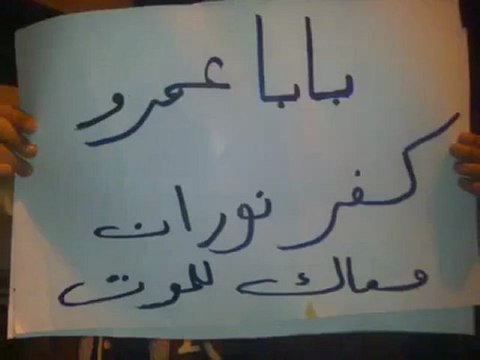 بابا عمرو
كفر نوران
معاك للموت